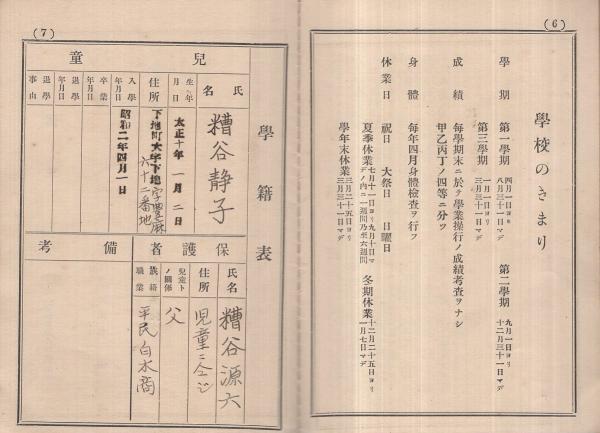 (6)
學校のきまり
學期 第一學期 四月一日ヨリ八月三十一日マデ 第二學期 九月一日ヨリ十二月三十一日マデ
第三學期 一月一日ヨリ三月三十一日マデ
成績 每學期末ニ於テ學業操行ノ成績考査ヲナシ
甲乙丙丁ノ四等ニ分ツ
身體 每年四月身體檢査ヲ行フ
休業日 祝日 大祭日 日曜日
夏季休業 七月十一日ヨリ九月十日マデノ內ニ一週間乃至六週間 冬期休業 十二月二十五日ヨリ一月七日マデ
學年末休業 三月二十五日ヨリ三月三十一日マデ
(7)
學籍表
兒童
氏名 糟谷靜子
生年月日 大正十年一月二日
住所 下地町大字下地字豊麻六十二番地
入學年月日 昭和二年四月一日
卒業年月日
退學年月日
退學事由
保護者
氏名 糟谷源六
住所 児童ニ仝ジ
兒童トノ關係 父
族籍職業 平民 白木商
備考